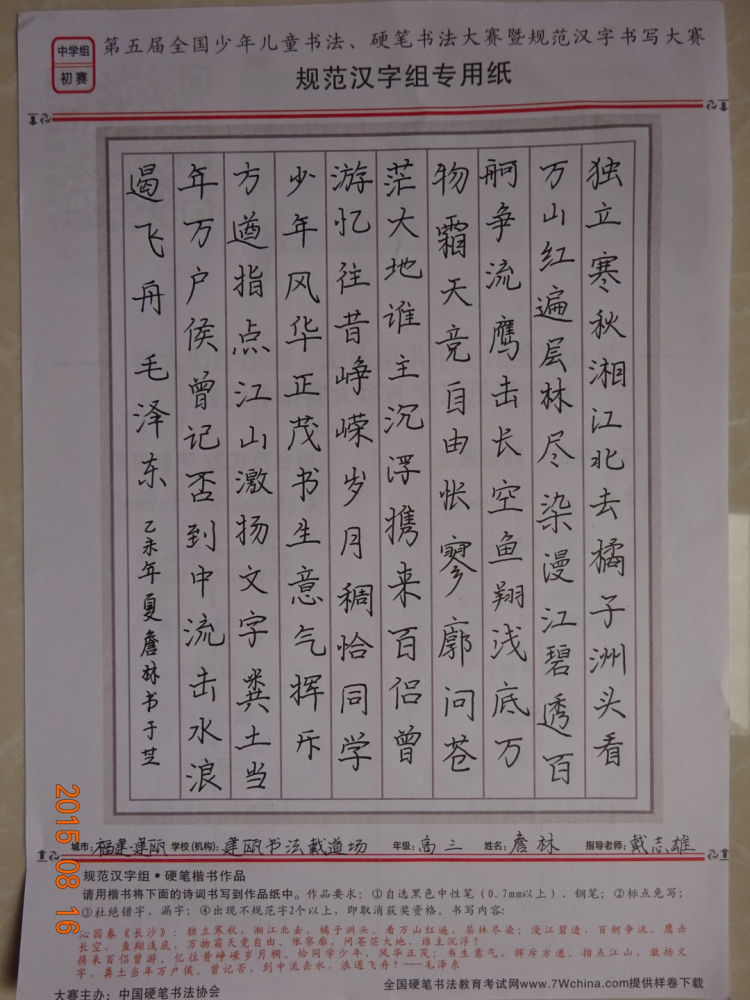 中学组
初赛
第五届全国少年儿童书法、硬笔书法大赛暨规范汉字书写大赛
规范汉字组专用纸
独立寒秋湘江北去橘子洲头看
万山红遍层林尽染漫江碧透百
舸争流鹰击长空鱼翔浅底万
物霜天竞自由怅寥廓问苍
茫大地谁主沉浮携来百侣曾
游忆往昔峥嵘岁月稠恰同学
少年风华正茂书生意气挥斥
方遒指点江山激扬文字粪土当
年万户侯曾记否到中流击水浪
遏飞舟 毛泽东 乙未年夏詹林书于芝
城市:福建·建瓯 学校(机构):建瓯书法戴道场 年级:高三 姓名:詹林 指导老师:戴志雄
规范汉字组·硬笔楷书作品
请用楷书将下面的诗词书写到作品纸中。作品要求:①自选黑色中性笔(0.7mm以上)、钢笔;②标点免写;
③杜绝错字、漏字;④出现不规范字2个以上,即取消获奖资格。书写内容:
沁园春《长沙》:独立寒秋,湘江北去,橘子洲头。看万山红遍,层林尽染;漫江碧透,百舸争流。鹰击
长空,鱼翔浅底,万物霜天竞自由。怅寥廓,问苍茫大地,谁主沉浮?
携来百侣曾游,忆往昔峥嵘岁月稠。恰同学少年,风华正茂;书生意气,挥斥方遒。指点江山,激扬文
字,粪土当年万户侯。曾记否,到中流击水,浪遏飞舟?——毛泽东
大赛主办:中国硬笔书法协会
全国硬笔书法教育考试网www.7Wchina.com提供样卷下载
2015 08 16